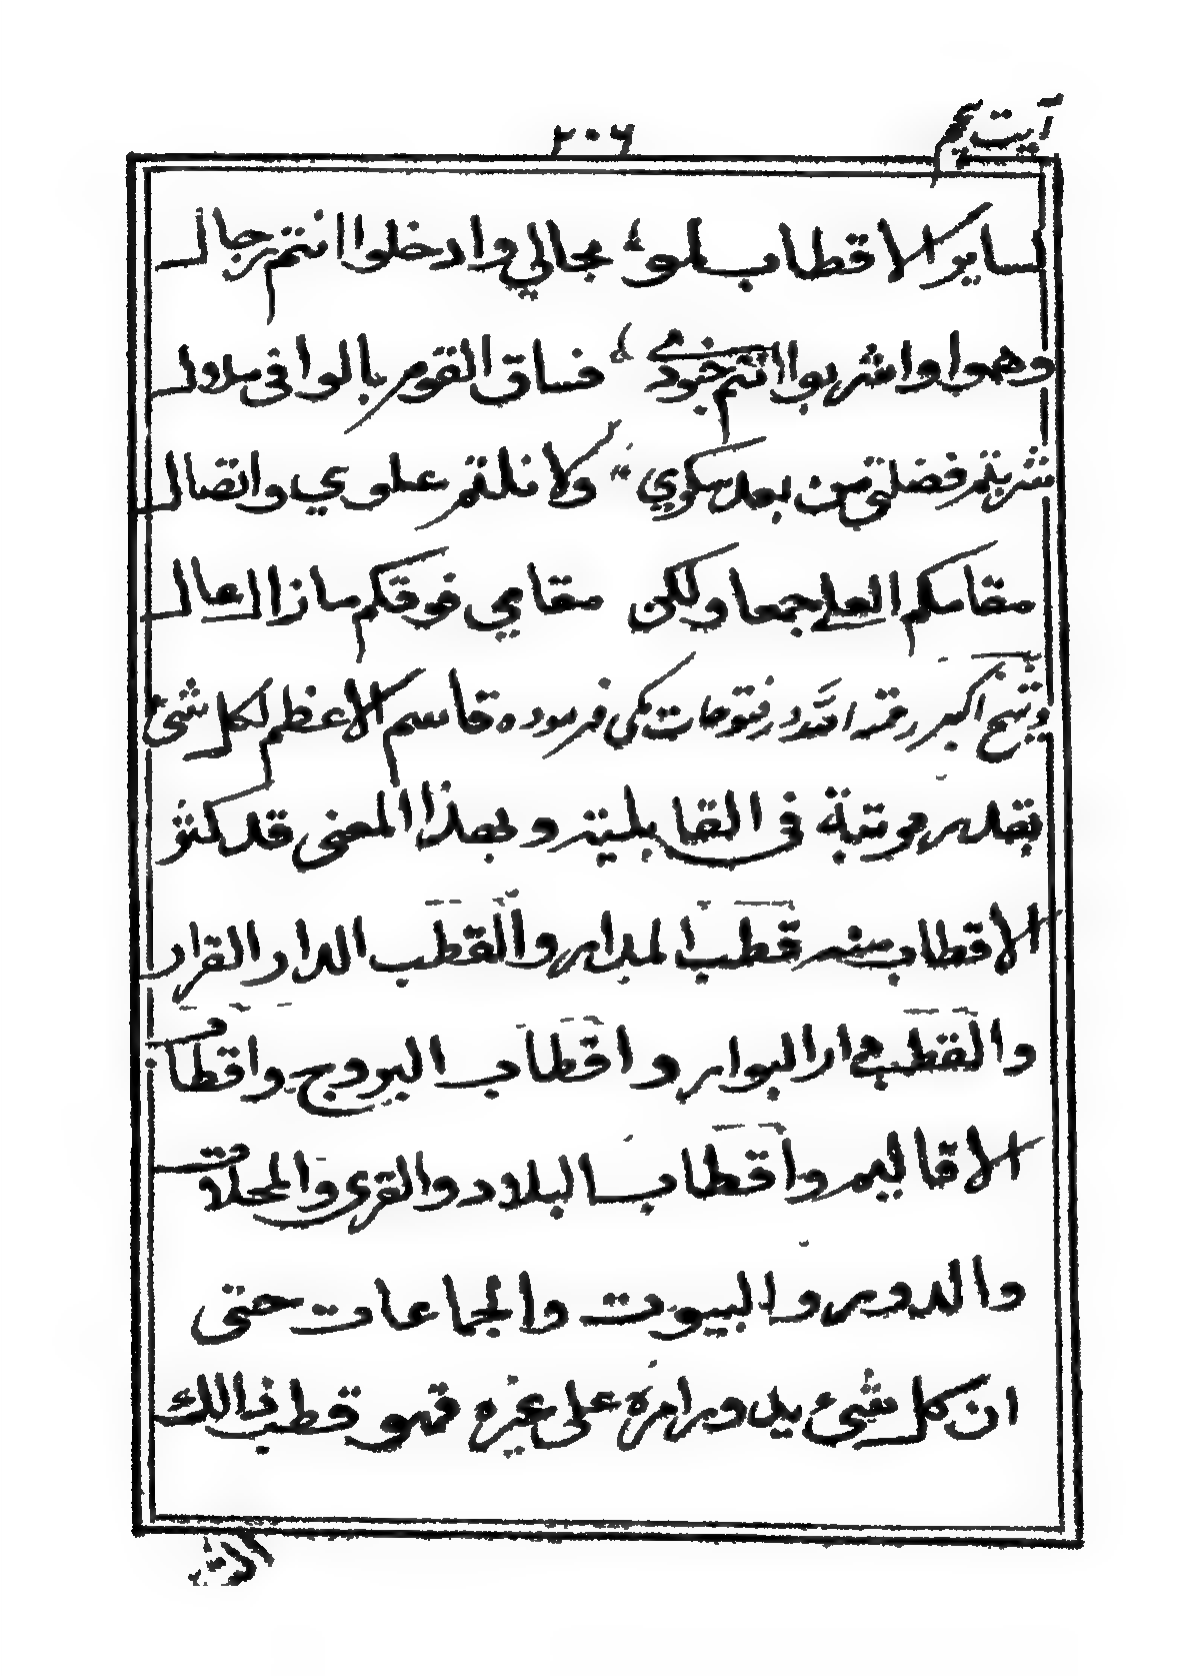 آیت پنجم
۲۰۶
لسایر الاقطاب لموء بحالي وادخلوا انتم رجال
وهموا واشربوا انتم جنودی فساق القوم بالوافی ملال
شربتم فضلتی من بعد سکري ولا نلتم علوي واتصال
مقامکم العلے جمعا ولکن مقامي فوقکم مازال عال
وشیخ اکبر رفتوحات مکی فرموده قاسم الاعظم لکل شئ
بقدر مرتبة فی القابلیة وبهذا المعنی قد کثر
الاقطاب منه قطب المدار والقطب الدار القرار
والقطب دار البوار واقطاب البروج واقطاب
الاقالیم واقطاب البلاد والقری والمحلات
والدور والبیوت والجماعات حتی
ان کل شئ یدور امره علی غیره فهو قطب ذالك